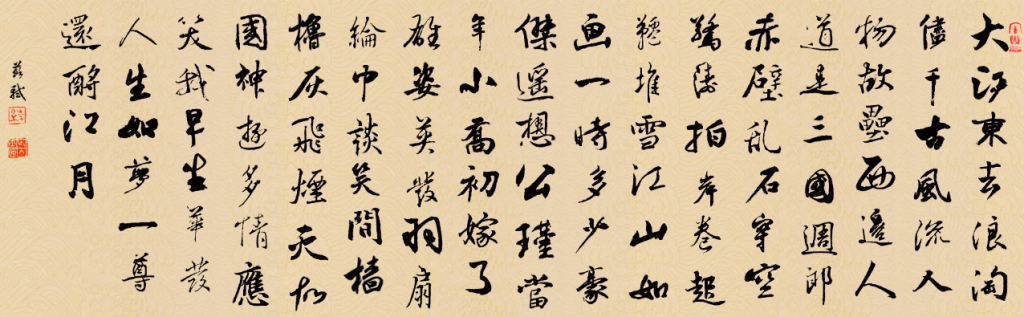 大江東去浪淘
儘千古風流人
物故壘西邊人
道是三國週郎
赤壁乱石穿空
驚濤拍岸卷起
韆堆雪江山如
画一時多少豪
傑遥想公瑾當
年小喬初嫁了
雄姿英發羽扇
綸巾談笑間檣
櫓灰飛煙灭故
國神遊多情應
笑我早生華發
人生如夢一尊
還酹江月
蘇軾